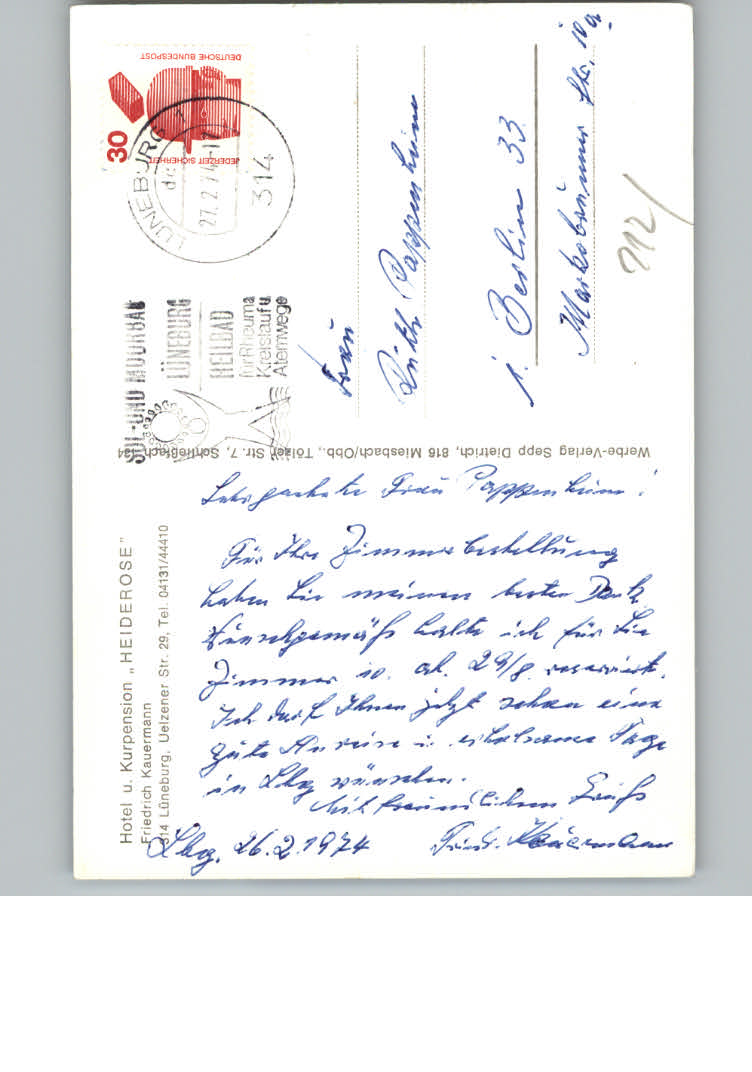 Hotel u. Kurpension „HEIDEROSE"
Friedrich Kauermann
314 Lüneburg, Uelzener Str. 29, Tel. 04131/44410
Sehr geehrte Frau Pappenheim!
Für Ihre Zimmerbestellung
haben Sie meinen besten Dank
Wunschgemäß halte ich für Sie
Zimmer 10. ab 29/8. reserviert.
Ich darf Ihnen jetzt schon eine
gute Anreise u. erholsame Tage
in Lbg wünschen.
Mit freundlichem Gruß
Lbg. 26.2.1974 Friedr. Kauermann
Werbe-Verlag Sepp Dietrich, 816 Miesbach/Obb., Tölzer Str. 7, Schließfach
DEUTSCHE BUNDESPOST
30
JEDERZEIT SICHERHEIT
LÜNEBURG 1
27.2.74
314
SOL-UND MOORBAD
LÜNEBURG
HEILBAD
für Rheuma
Kreislauf u.
Atemwege
Frau
Ruth Pappenheim
1 Berlin 33
Markobrunner Str. 10a
212/